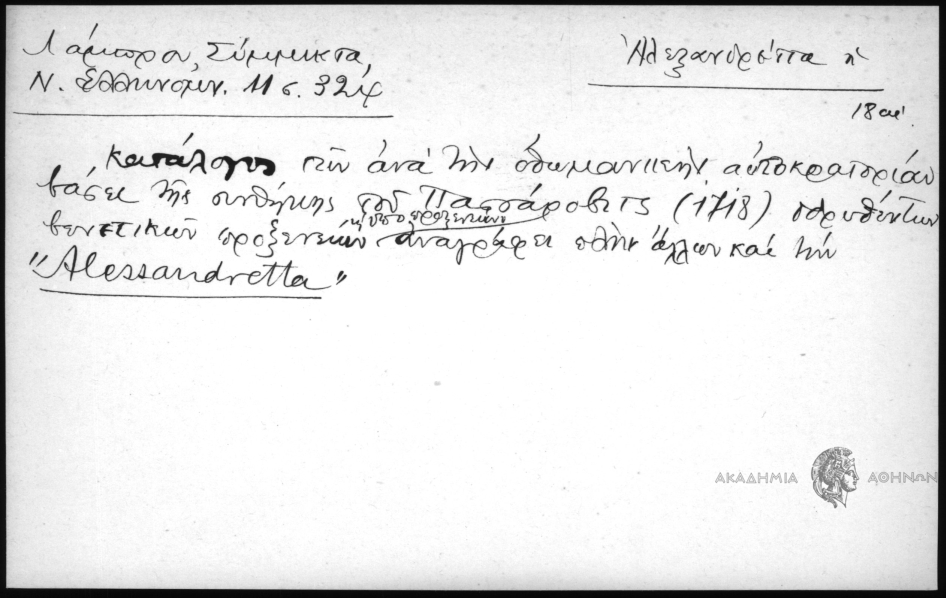 Λάμπρου, Σύμμικτα,
Ν. Ἑλληνομν. 11 σ. 32
Ἀλεξανδρέττα ἡ
18 αἰ.
Κατάλογος τῶν ἀνὰ τὴν ὀθωμανικὴν αὐτοκρατορίαν
βάσει τῆς συνθήκης τοῦ Πασσάροβιτς (1718) ἱδρυθέντων
καὶ ὑποπροξενείων
βενετικῶν προξενείων ἀναγράφει πλὴν ἄλλων καὶ τὴν
"Alessandretta"
ΑΚΑΔΗΜΙΑ ΑΘΗΝΩΝ